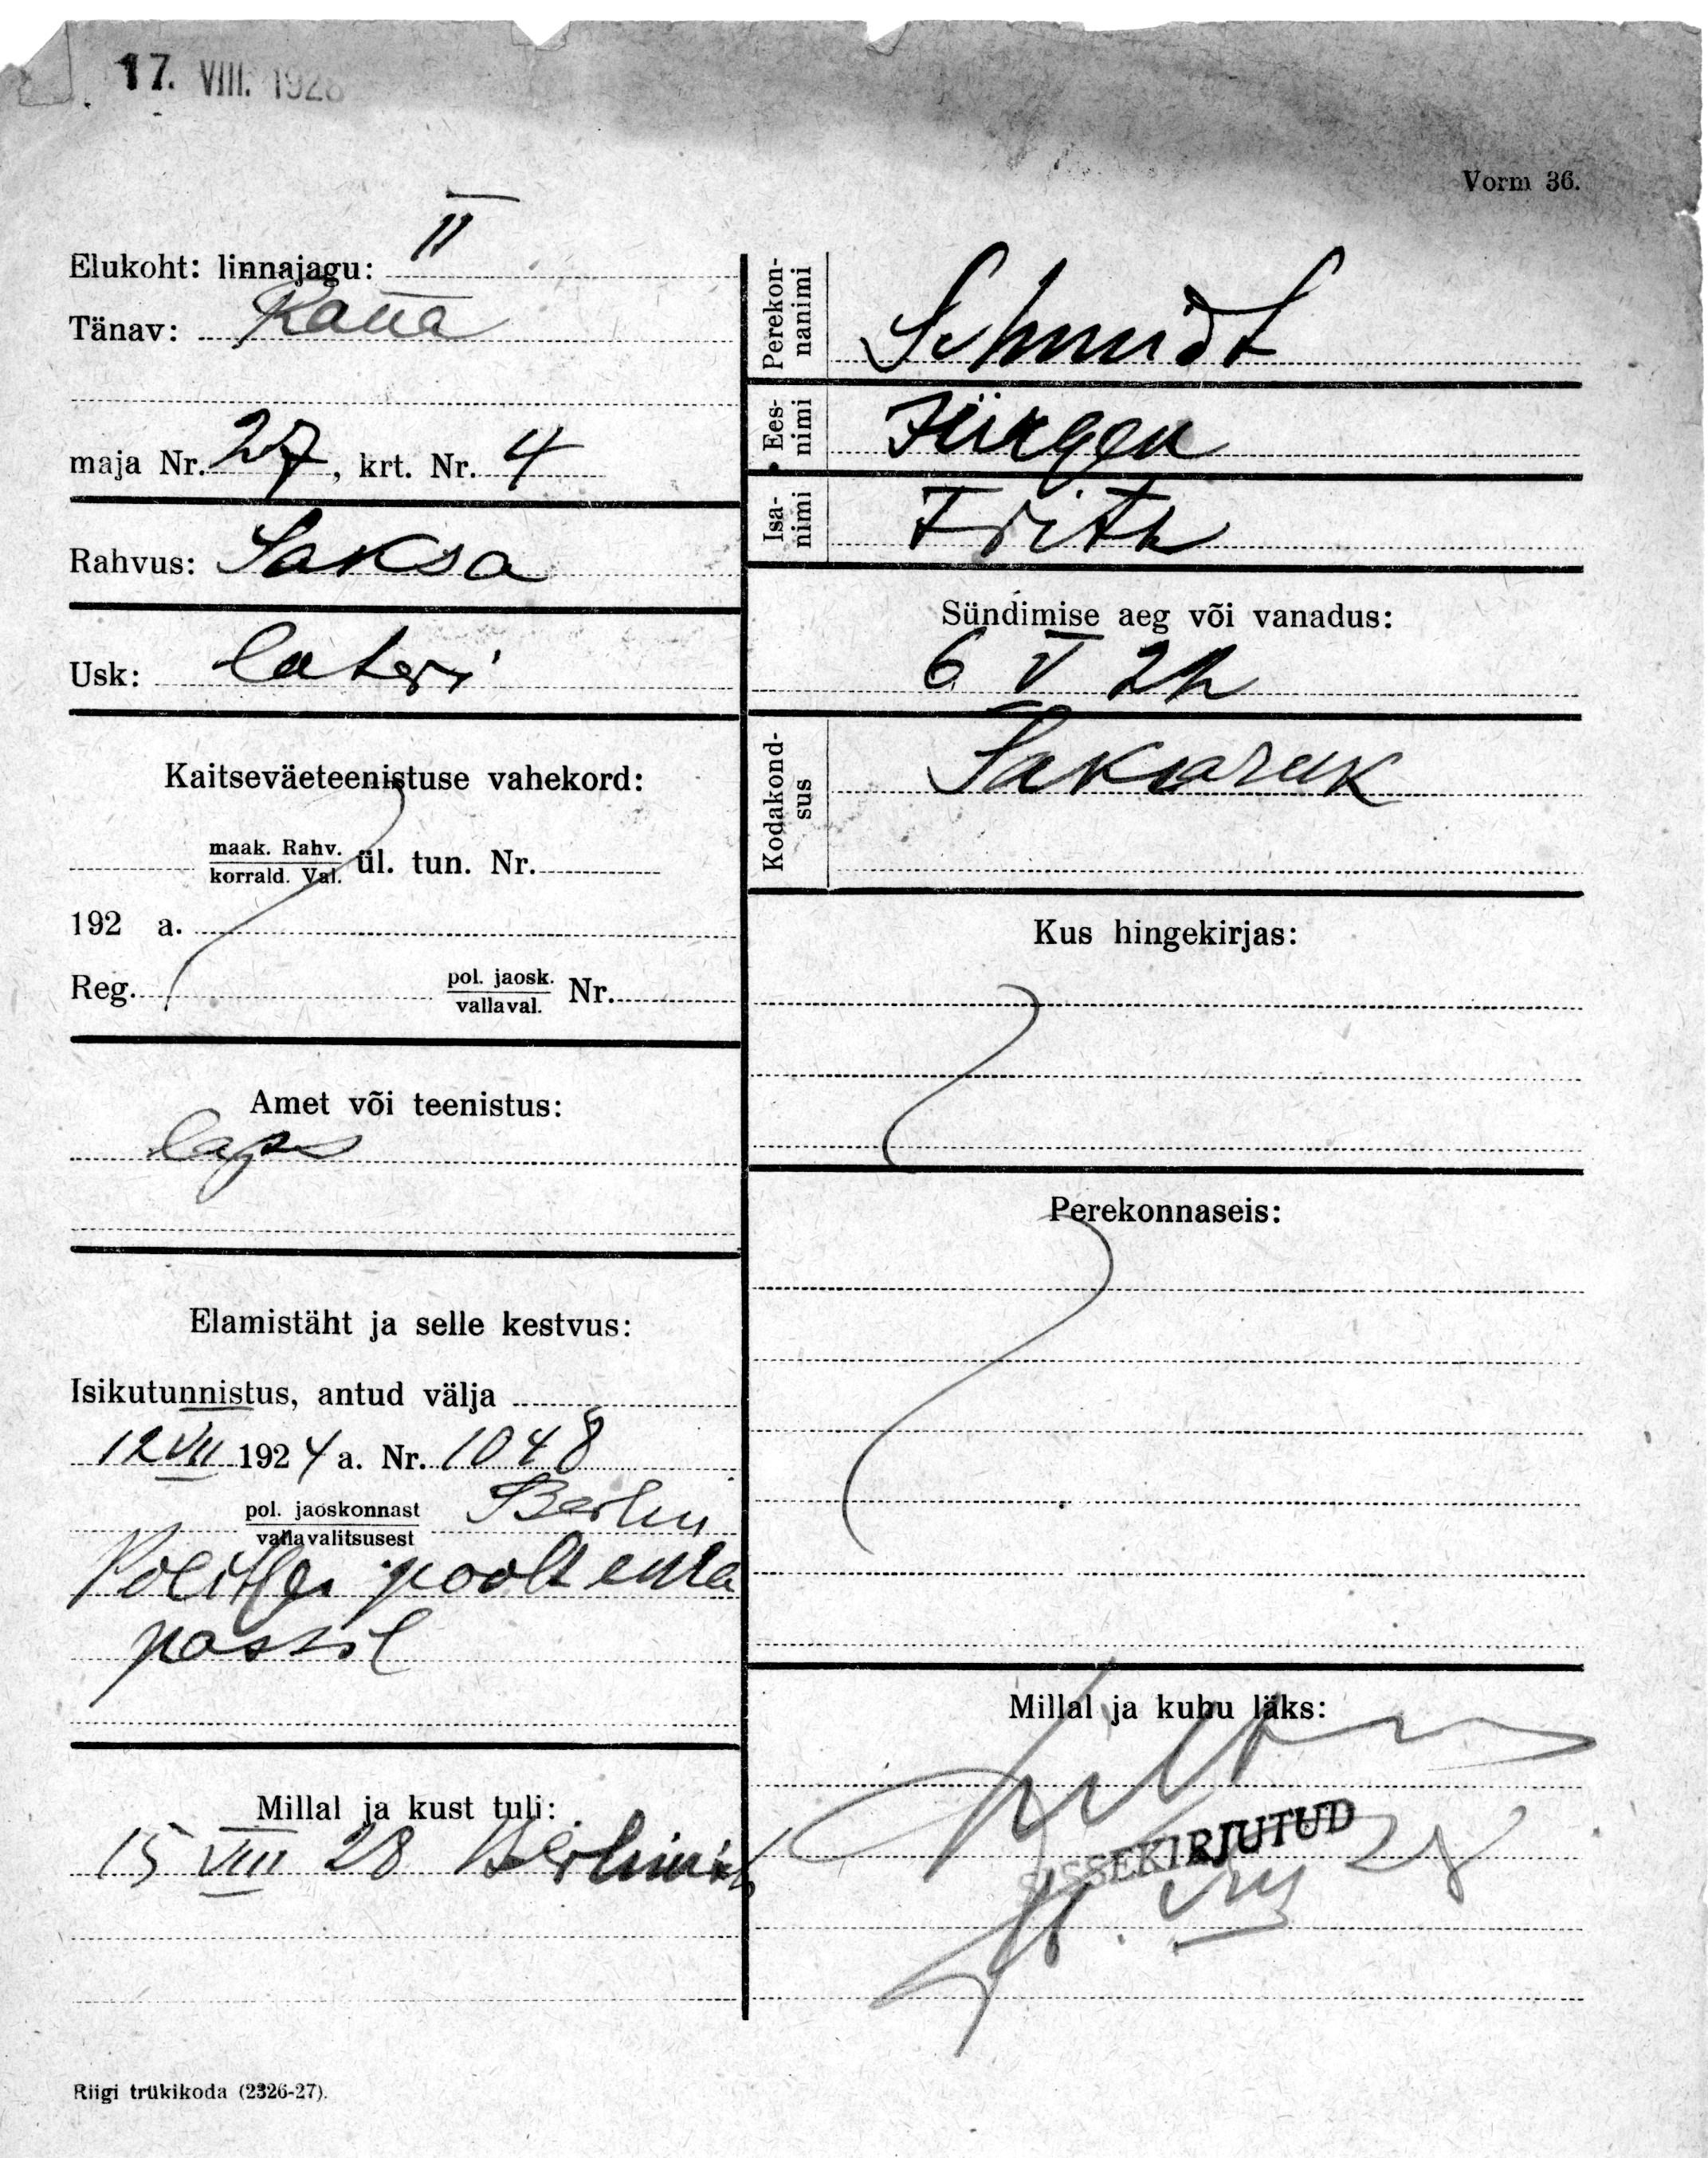 17. VIII. 1928
Vorm 36.
Elukoht: linnajagu: II
Tänav:
maja Nr. 27, krt. Nr. 4
Rahvus: Saksa
Usk: luteri
Kaitseväeteenistuse vahekord:
maak. Rahv.
korrald. Val. ül. tun. Nr.
192 a.
Reg. pol. jaosk.
vallaval. Nr.
Amet või teenistus:
laps
Elamistäht ja selle kestvus:
Isikutunnistus, antud välja
12 VII 1924 a. Nr. 1048
pol. jaoskonnast
vallavalitsusest Berlin
Politsei poolt ema
passil
Millal ja kust tuli:
15 VIII 28 Berliinist
Perekon-
nanimi Schmidt
Ees-
nimi Jürgen
Isa-
nimi
Sündimise aeg või vanadus:
6 V
Kodakond-
sus
Kus hingekirjas:
Perekonnaseis:
Millal ja kuhu läks:
SISSEKIRJUTUD
28
Riigi trükikoda (2326-27).